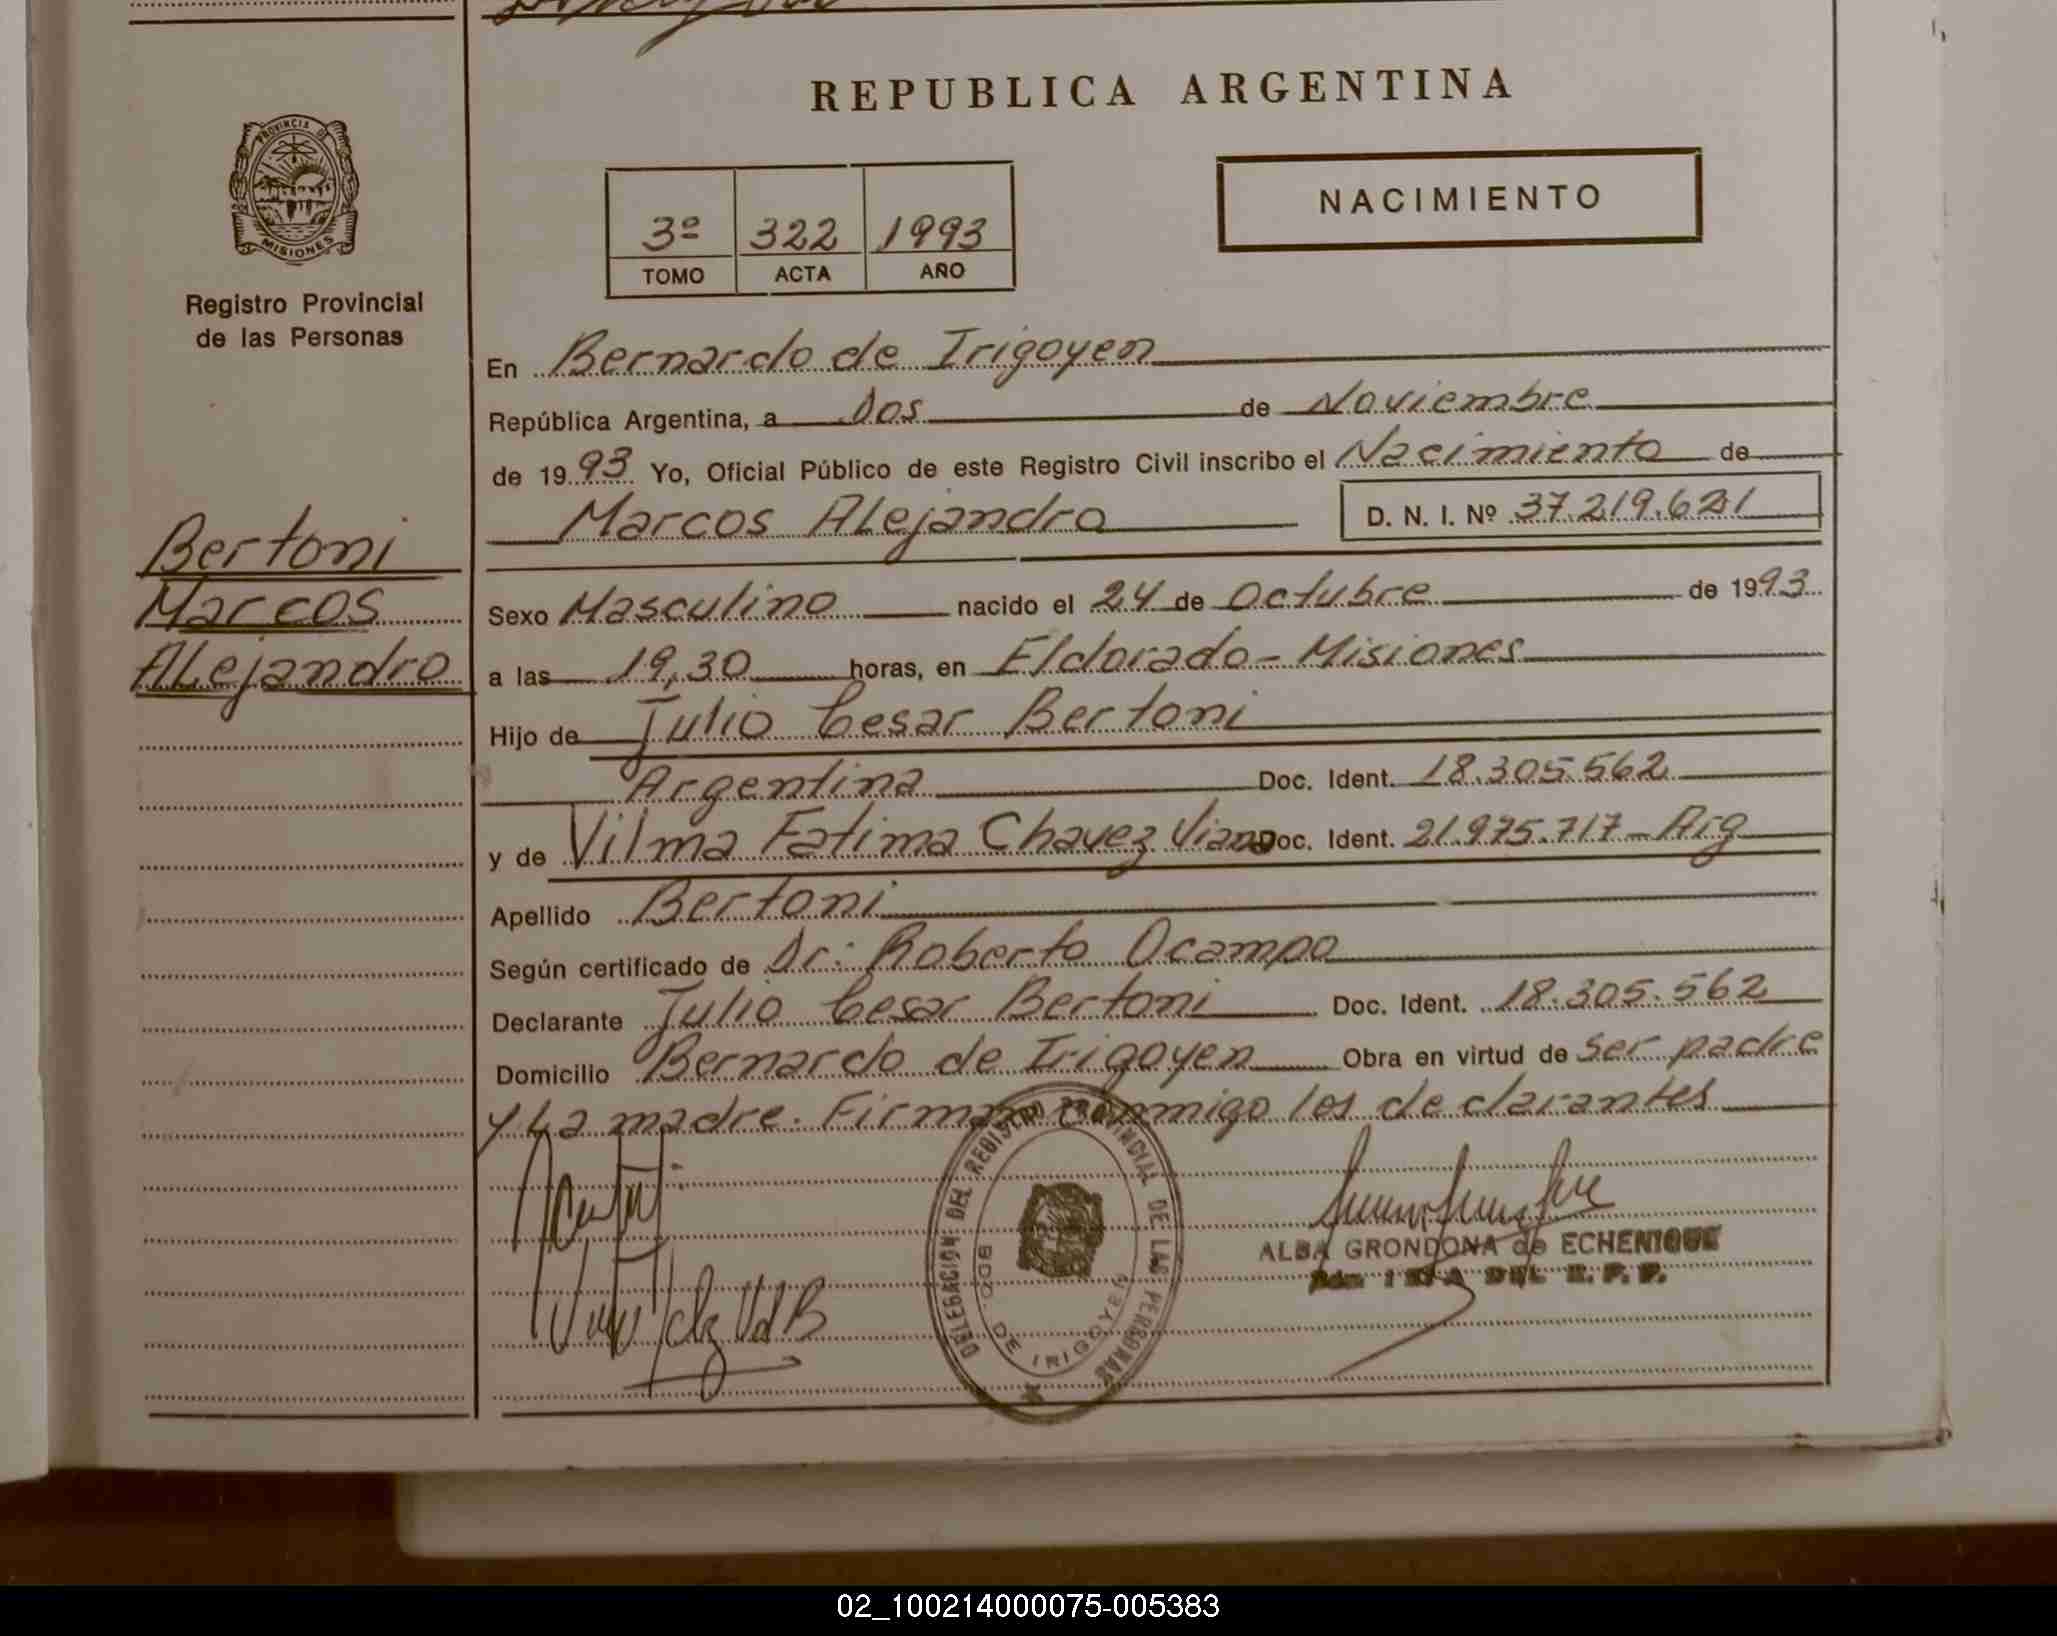 REPUBLICA ARGENTINA
PROVINCIA DE
MISIONES
Registro Provincial
de las Personas
3º 322 1993
TOMO ACTA AÑO
NACIMIENTO
En Bernardo de Irigoyen
República Argentina, a Dos de Noviembre
de 1993 Yo, Oficial Público de este Registro Civil inscribo el Nacimiento de
Marcos Alejandro D. N. I. Nº 37.219.621
Bertoni
Marcos
Alejandro
Sexo Masculino nacido el 24 de Octubre de 1993
a las 19,30 horas, en Eldorado - Misiones
Hijo de Julio Cesar Bertoni
Argentina Doc. Ident. 18.305.562
y de Vilma Fatima Chavez Viana Doc. Ident. 21.975.717 - Arg
Apellido Bertoni
Según certificado de Dr: Roberto Ocampo
Declarante Julio Cesar Bertoni Doc. Ident. 18.305.562
Domicilio Bernardo de Irigoyen Obra en virtud de ser padre
y La madre. Firman conmigo los declarantes
DELEGACION DEL REGISTRO PROVINCIAL DE LAS PERSONAS
BDO. DE IRIGOYEN
ALBA GRONDONA de ECHENIQUE
DEL R. P. P.
02_100214000075-005383